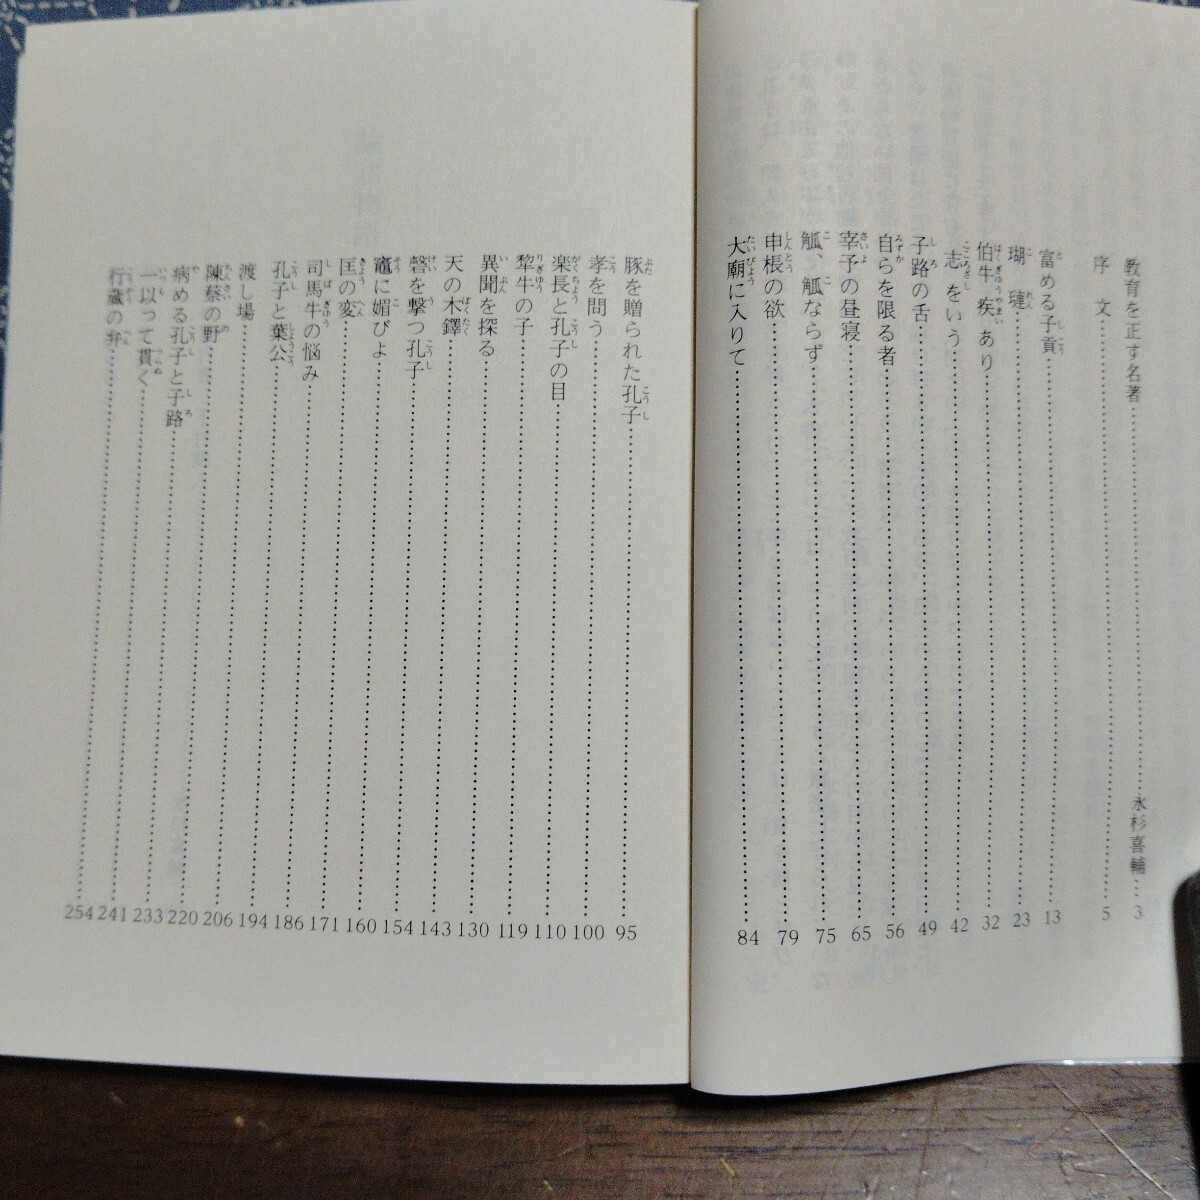 教育を正す名著……永杉喜輔…3
序文……5
富める子貢……13
瑚璉……23
伯牛疾あり……32
志をいう……42
子路の舌……49
自らを限る者……56
宰予の昼寝……65
觚、觚ならず……75
申棖の欲……79
大廟に入りて……84
豚を贈られた孔子……95
孝を問う……100
楽長と孔子の目……110
犂牛の子……119
異聞を探る……130
天の木鐸……143
磬を撃つ孔子……154
竈に媚びよ……160
匡の変……171
司馬牛の悩み……186
孔子と葉公……194
渡し場……206
陳蔡の野……220
病める孔子と子路……233
一以って貫く……241
行蔵の弁……254